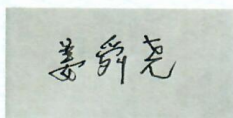 姜舜尧